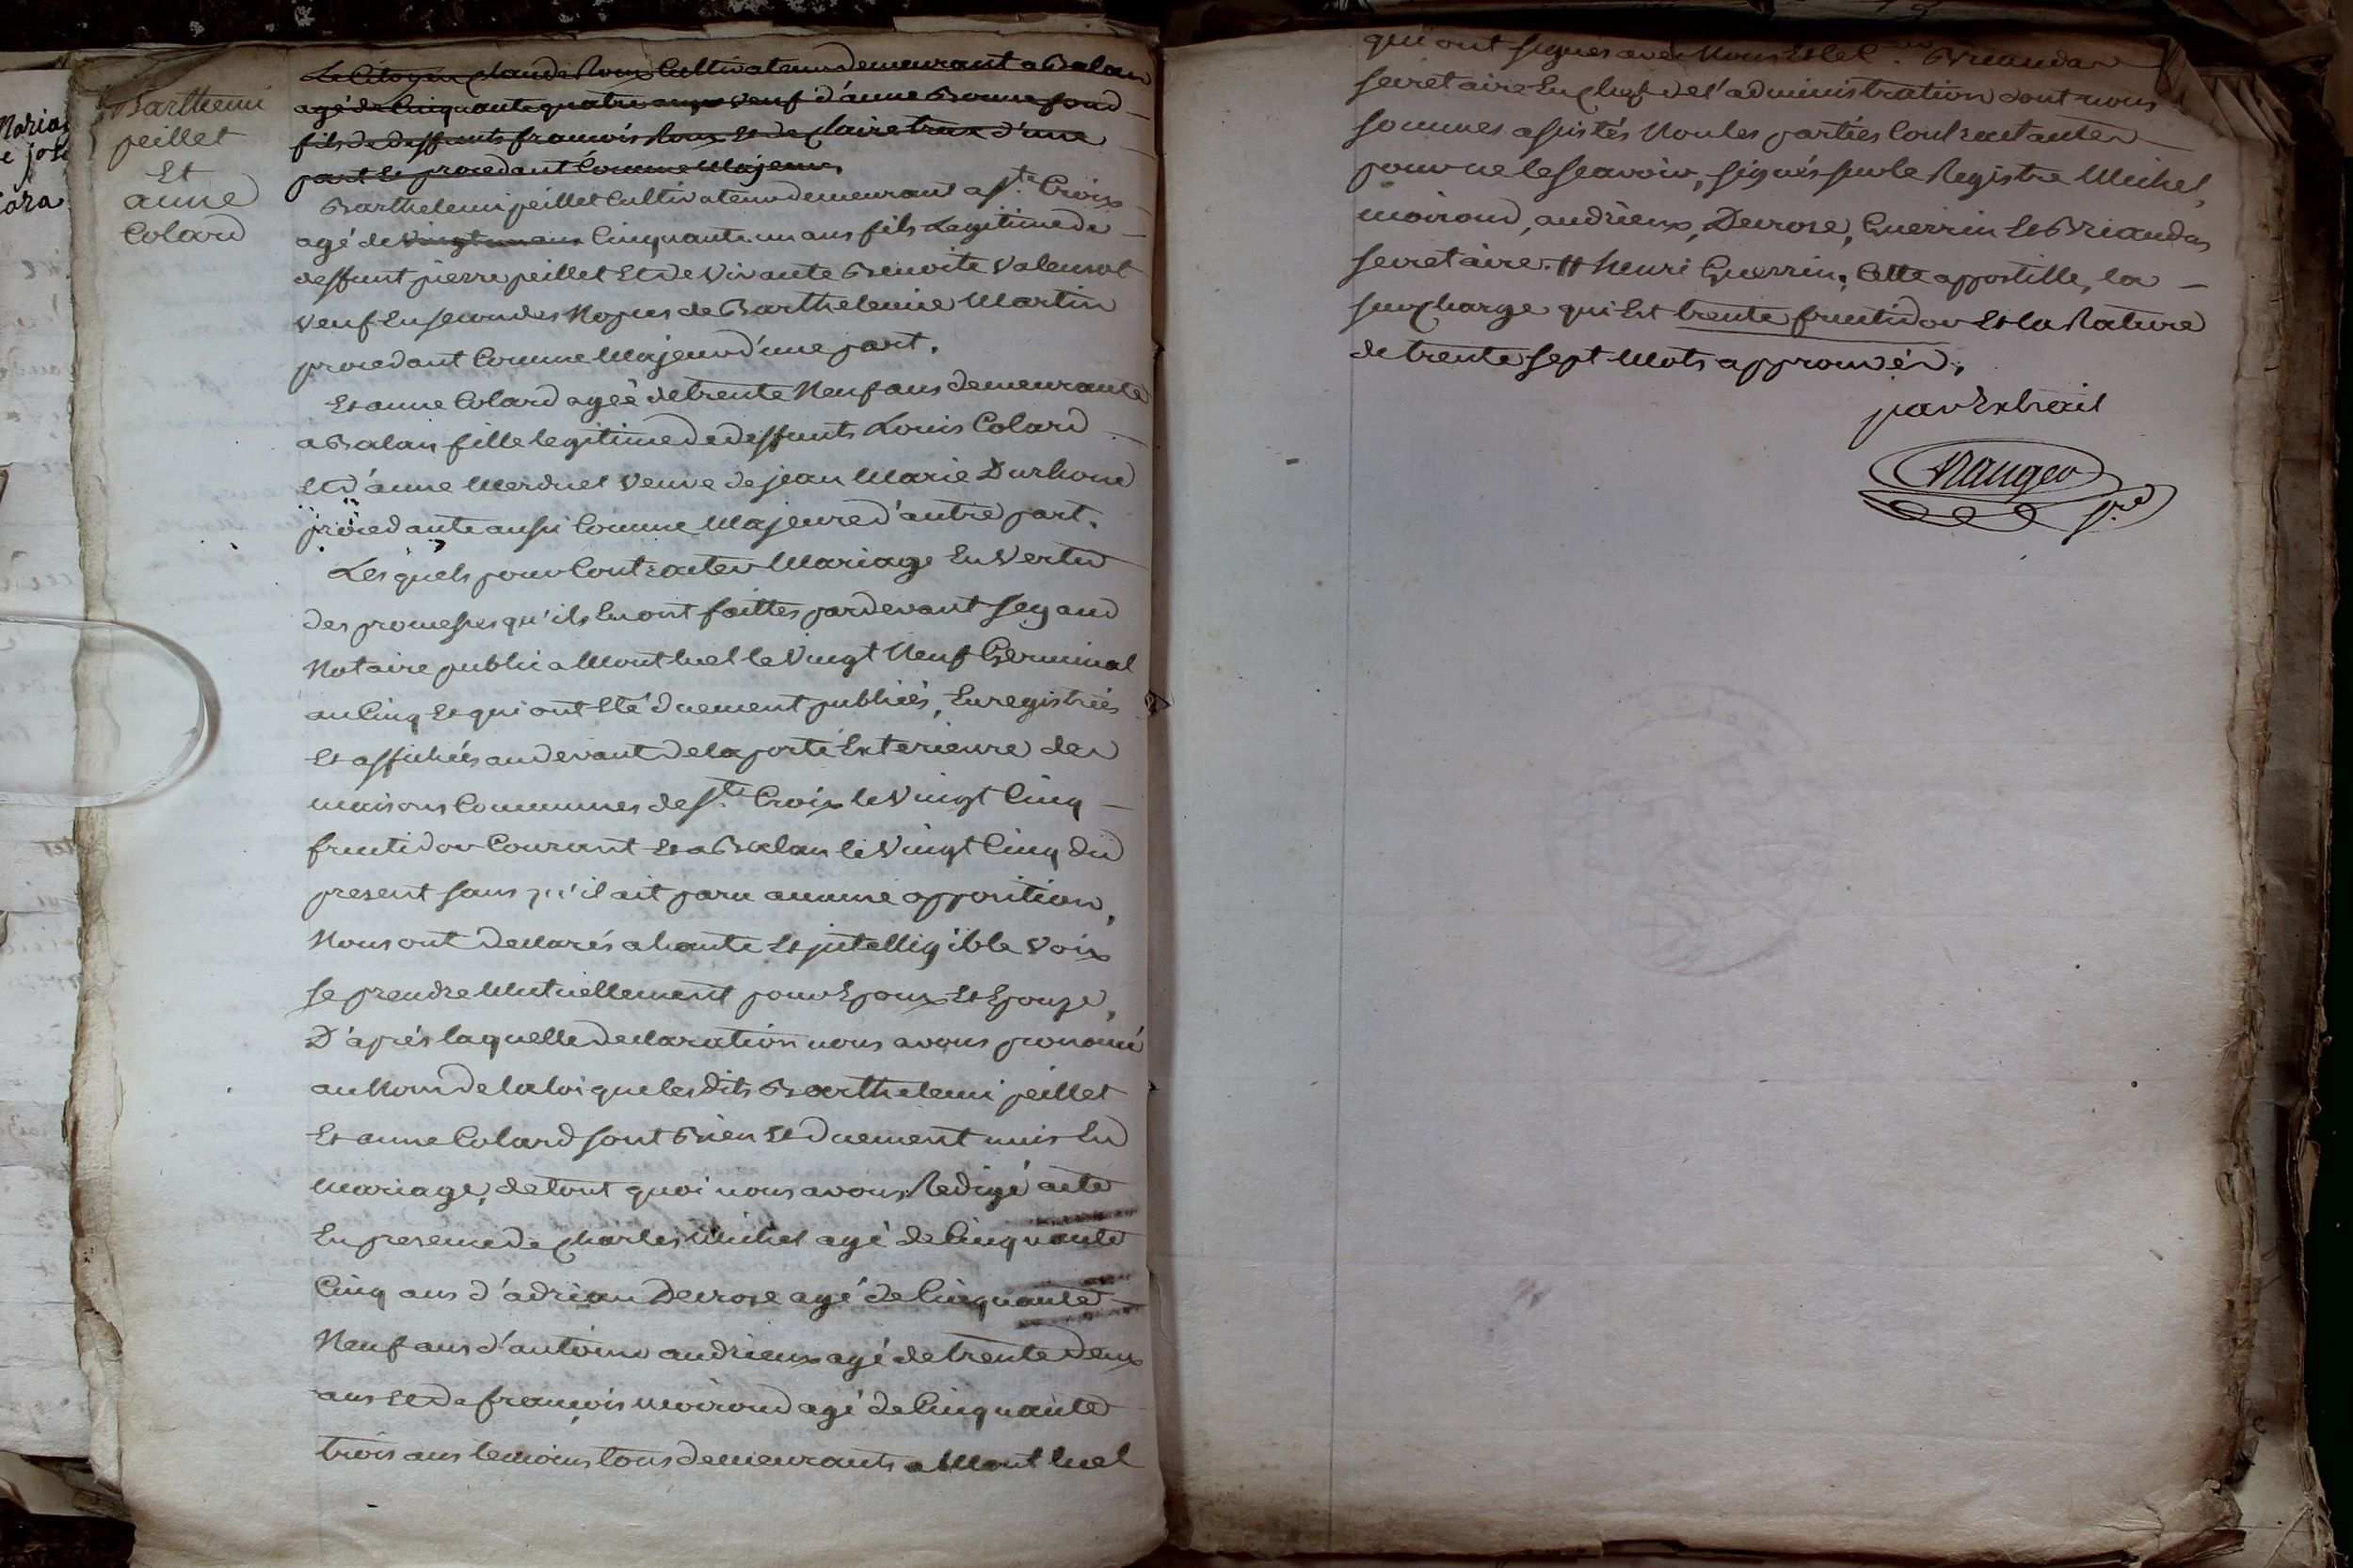 Barthemi
peillet
Et
anne
Colard
Le Citoyen Claude Roux Cultivateur demeurant a Balan
agé de Cinquante quatre ans veuf d'anne Bonnefond
fils de deffunts francois Roux Et de Claire trux d'une
part Et procedant Comme Majeur,
Barthelemi peillet Cultivateur demeurant a Ste Croix
agé de vingt un ans Cinquante un ans fils Legitime de
deffunt pierre peillet Et de Vivante Benoite Valensot
veuf En secondes Noces de Barthelemie Martin
procedant Comme Majeur d'une part.
Et anne Colard agéé de trente Neuf ans demeurante
a Balan fille legitime de deffunts Louis Colard
Et d'anne Merduel Veuve de jean Marie Durhone
procedante aussi Comme Majeure d'autre part.
Lesquels pour Contracter Mariage En Vertu
des promesses qu'ils En ont faittes pardevant Segaud
Notaire public a Montluel le Vingt Neuf Germinal
an Cinq Et qui ont Eté duement publiés, Enregistrés
Et affichés au devant de la porte Exterieure des
maisons Communes de Ste Croix le Vingt Cinq
fructidor Courant Et a Balan le Vingt Cinq du
present sans qu'il ait paru aucune opposition,
Nous ont declarés a haute Et jntelligible Voix
se prendre Mutuellement pour Epoux Et Epouze,
D'aprés laquelle declaration nous avons prononcé
au Nom de la loi que lesdits Barthelemi peillet
Et anne Colard sont Bien Et duement unis En
Mariage, de tout quoi nous avons Redigé acte
En presence de Charles Michel agé de Cinquante
Cinq ans d'adrian Decrose agé de Cinquante
Neuf ans d'antoine andrieux agé de trente deux
ans Et de francois moiroud agé de Cinquante
trois ans temoins tous demeurants a Montluel
qui ont signés avec Nous Et le Briandas
secretaire En chef de l'administration dont nous
sommes assistés Non les parties Contractantes
pour ne le scavoir, signés sur le Registre Michel,
moiroud, andrieux, Decrose, Guerrin Et Briandas
secretaire. # henri Guerrin, Cette appostille, la
surcharge qui Est trente fructidor Et la Rature
de trente sept Mots approuvés,
par Extrait